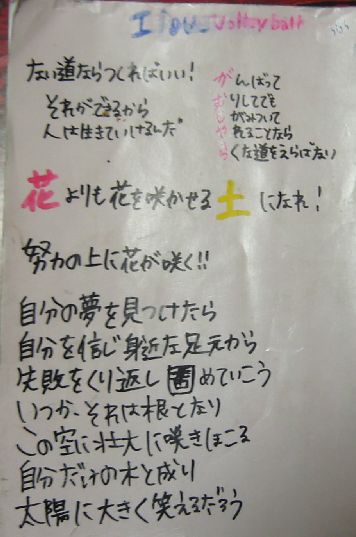 I love Volleyball
ない道ならつくればいい!
それができるから
人は生きていけるんだ
がんばって
むりしてでも
しがみついて
やれることなら
らくな道をえらばない
花よりも花を咲かせる土になれ!
努力の上に花が咲く!!
自分の夢を見つけたら
自分を信じ身近な足元から
失敗をくり返し固めていこう
いつか、それは根となり
この空に壮大に咲きほこる
自分だけの木と成り
太陽に大きく笑えるだろう